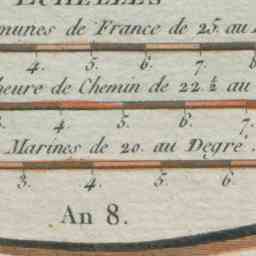 ECHELLES
munes de France de 25. au
4. 5. 6. 7. 8
heure de Chemin de 22 ½ au
3. 4. 5. 6. 7.
Marines de 20. au Degré.
3. 4. 5. 6.
An 8.